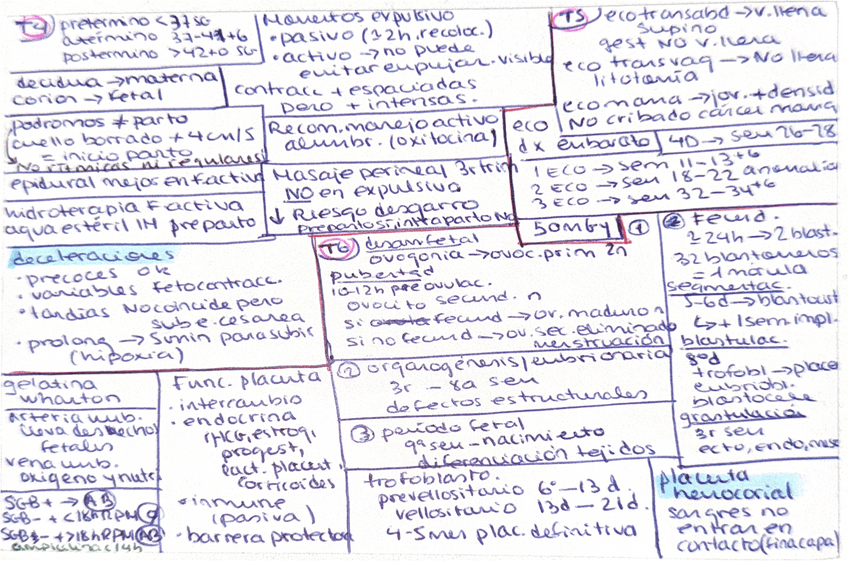 T4 pretermino <37sg
atermino 37-41+6
postermino >42+0 SG
decidua → materna
corion → fetal
podromos ≠ parto
cuello borrado + 4cm/s
= inicio parto
No rítmicas ni regulares
epidural mejor en f activa
hidroterapia F activa
agua estéril IH preparto
Momentos expulsivo
• pasivo (12h. recoloc.)
• activo → no puede
evitar empujar. visible
contracc + espaciadas
pero + intensas.
Recom. manejo activo
alumbr. (oxitocina)
Masaje perineal 3r trim
NO en expulsivo
↓ Riesgo desgarro
preparto sí, intraparto No
T5 eco transabd → v. llena
supino
gest NO v. llena
eco transvag → No llena
litotomía
eco mama → jov. + densid
No cribado cáncer mama
eco
dx embarazo
4D → sem 26-28
1 ECO → sem 11-13+6
2 ECO → sem 18-22 anomalía
3 ECO → sem 32-34+6
50mGy
deceleraciones
• precoces ok
• variables feto contracc.
• tardias No coincide pero
sube. cesarea
• prolong → 5min para subir
(hipoxia)
T6 desarr fetal
ovogonia → ovoc. prim 2n
pubertad
10-12h pre ovulac.
ovocito secund. n
si fecund → ov. maduro n
si no fecund → ov. sec. eliminado
menstruación
① 
② Fecund.
≥24h → 2 blast.
32 blastomeros
= 1 mórula
segmentac.
5-6d → blastocist
↳ + 1 sem impl.
blastulac.
8ºd
trofobl → place
embriobl.
blastocele
grastulación
3r sem
ecto, endo, meso
② organogénesis/embrionaria
3r - 8a sem
defectos estructurales
③ período fetal
9ª sem - nacimiento
diferenciación tejidos
gelatina
wharton
arteria umb.
lleva deshechos
fetales
vena umb.
oxigeno y nutri
SGB + → AB
SGB - + <18h RPM
+ >18h RPM AB
ampicilina c/4h
Func. placenta
• intercambio
• endocrina
(HCG, estrog,
progest,
lact. placent,
corticoides
• inmune
(pasiva)
• barrera protectora
trofoblasto.
prevellositario 6º-13 d.
vellositario 13d - 21d.
4-5 mes plac. definitiva
placenta
hemocorial
sangres no
entran en
contacto (fina capa)